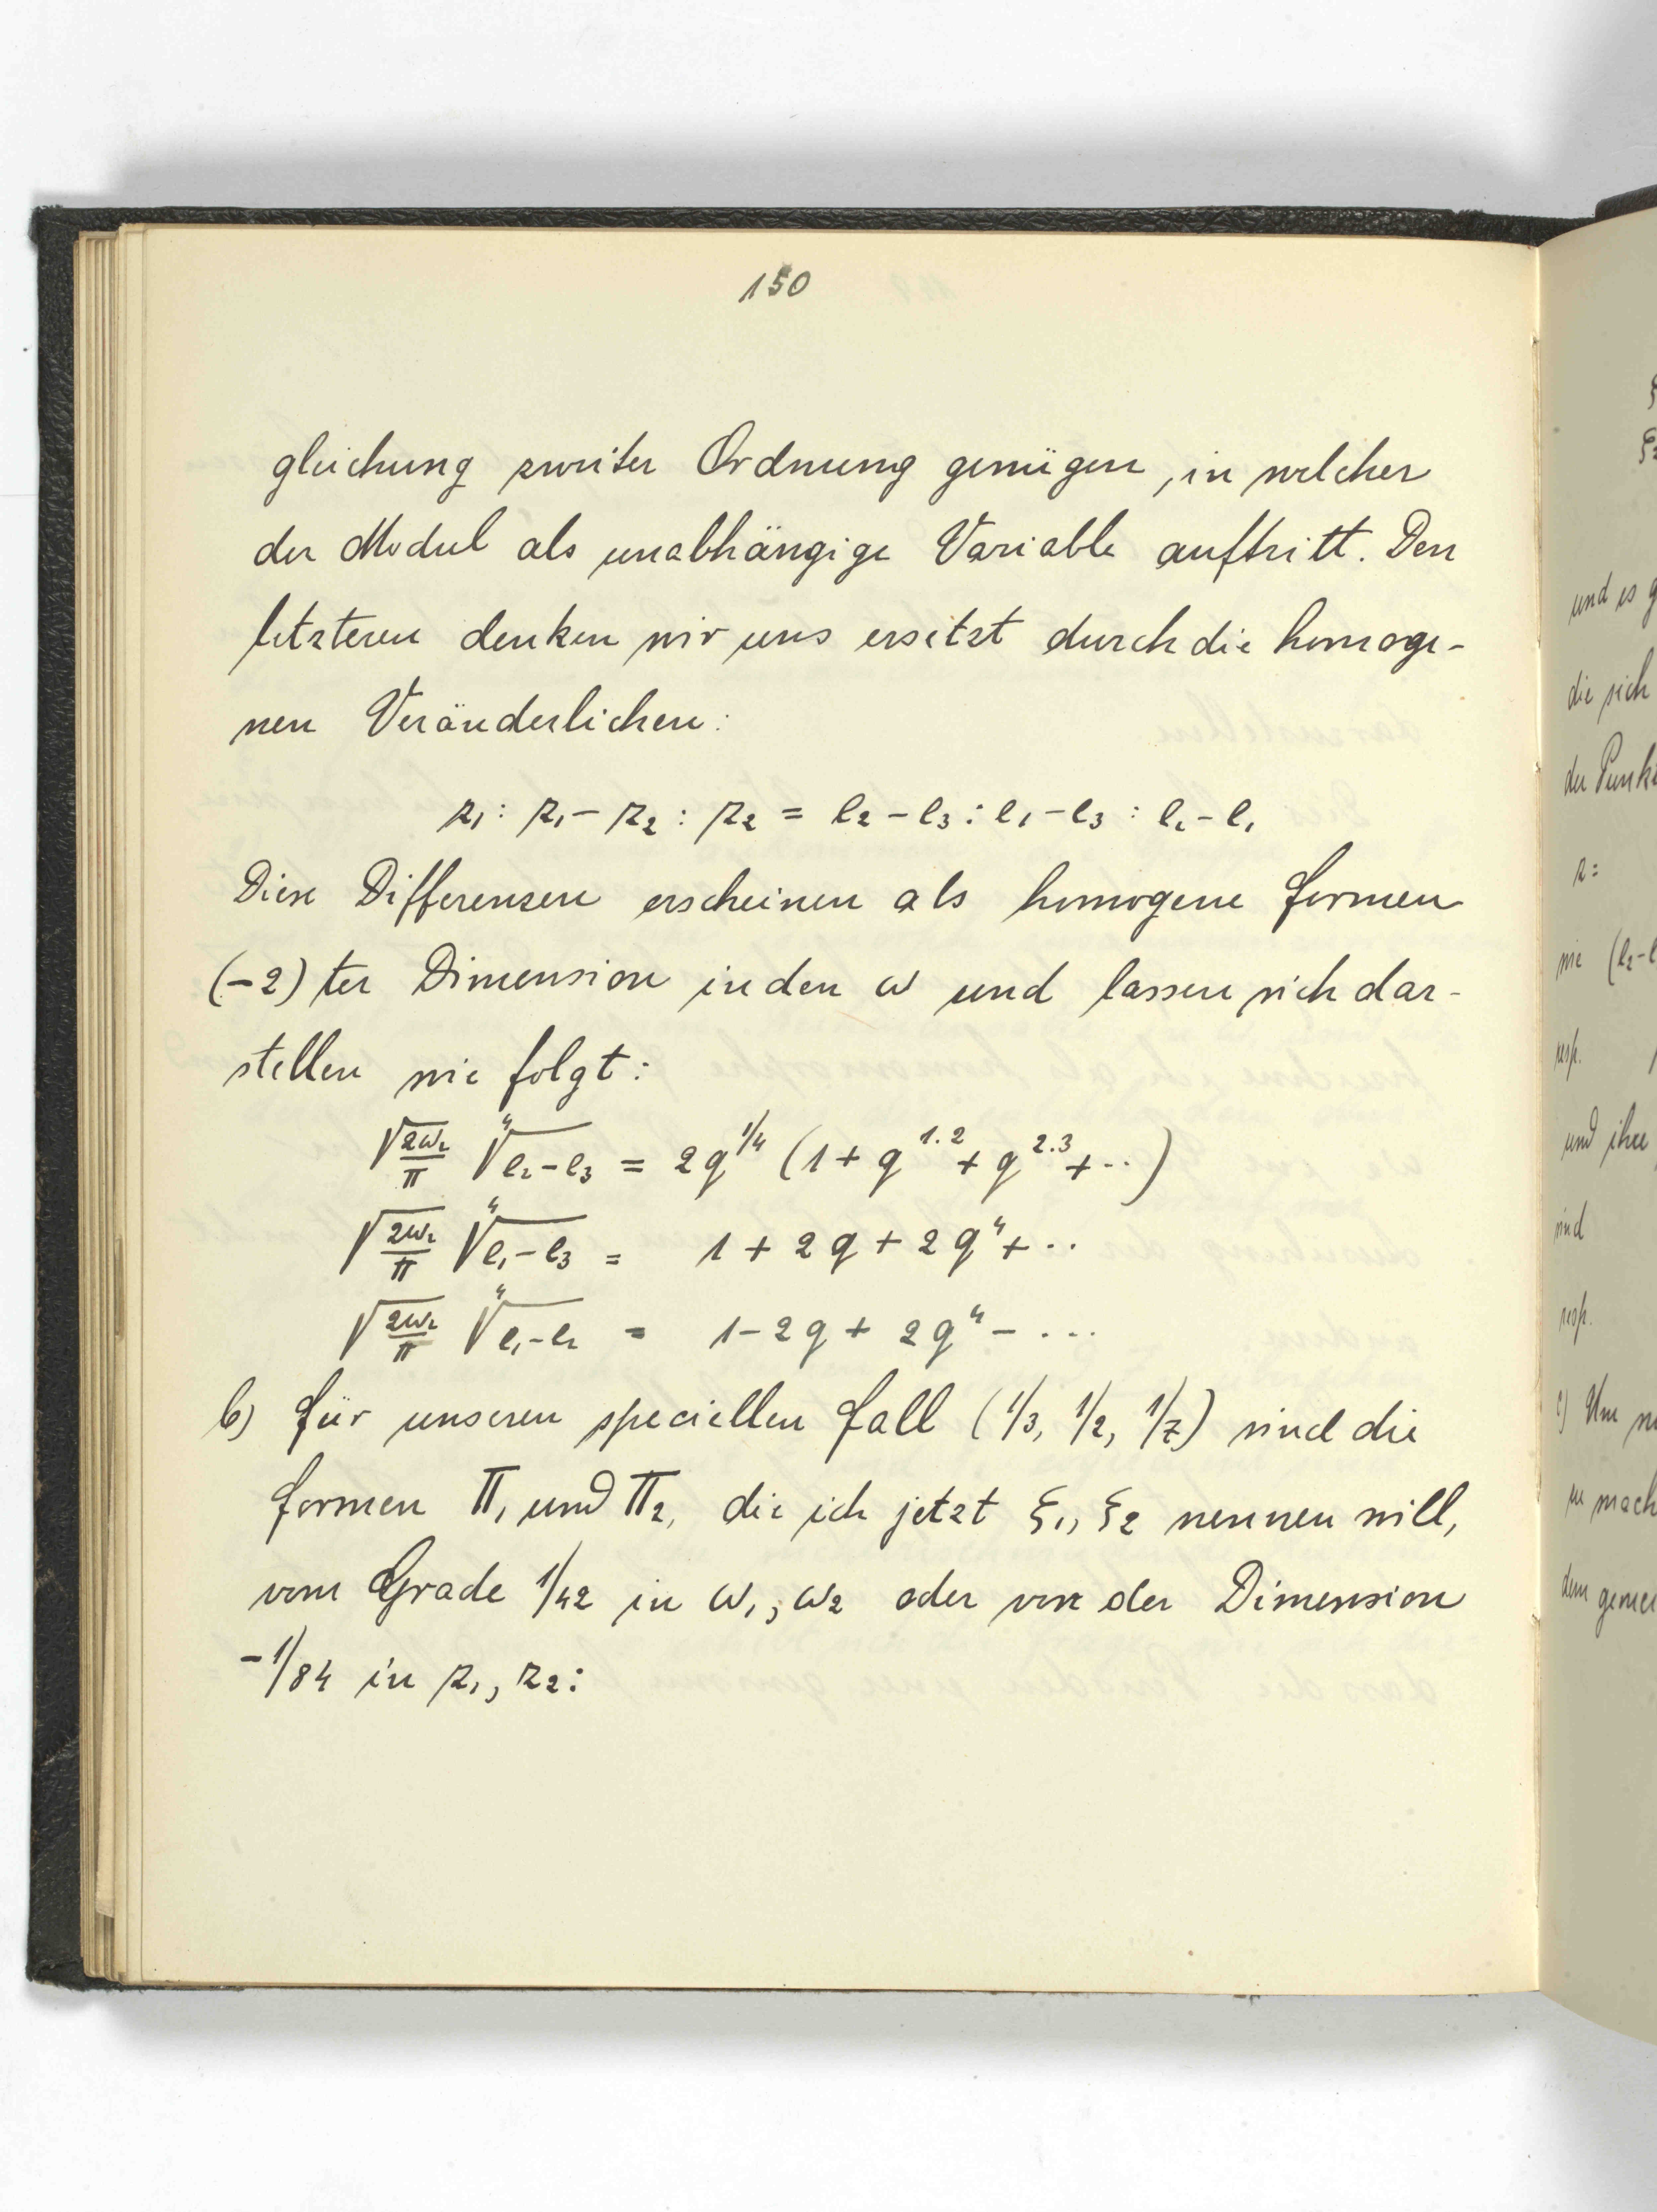 150
gleichung zweiter Ordnung genügen, in welcher
der Modul als unabhängige Variable auftritt. Den
letzteren denken wir uns ersetzt durch die homoge-
nen Veränderlichen:
z₁ : z₁ - z₂ : z₂ = e₂ - e₃ : e₁ - e₃ : e₂ - e₁
Diese Differenzen erscheinen als homogene Formen
(-2)ter Dimension in den ω und lassen sich dar-
stellen wie folgt:
√(2ω₂/π) ∜(e₂-e₃) = 2q^1/4 (1 + q^1.2 + q^2.3 + ··)
√(2ω₂/π) ∜(e₁-e₃) = 1 + 2q + 2q^4 + ··
√(2ω₂/π) ∜(e₁-e₂) = 1 - 2q + 2q^4 - ···
b) Für unseren speciellen Fall (1/3, 1/2, 1/7) sind die
Formen Π₁ und Π₂, die ich jetzt ξ₁, ξ₂ nennen will,
vom Grade 1/42 in ω₁, ω₂ oder von der Dimension
-1/84 in z₁, z₂:
und es g
die sich
der Punk
z =
wie (e₂-e
resp.
und ihre
sind
resp.
c) Um
zu mach
dem gemei